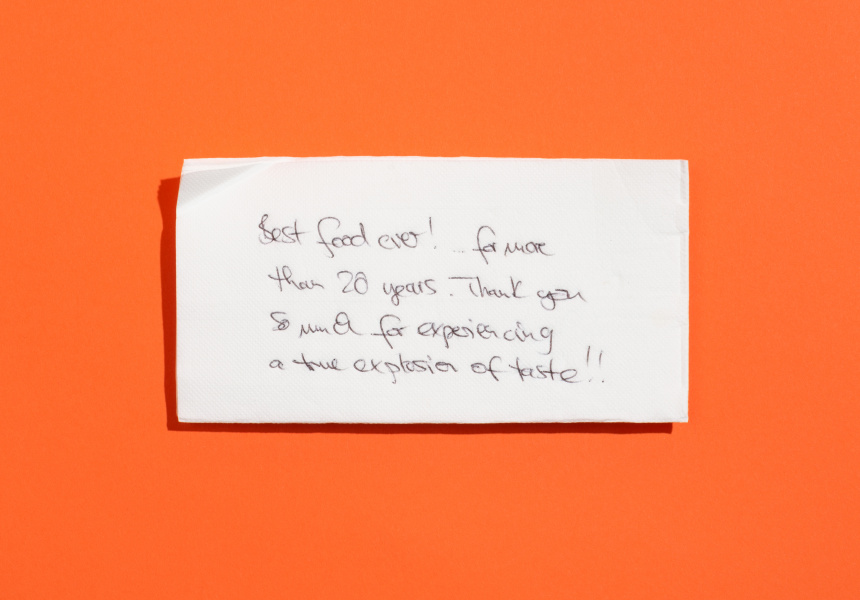 Best food ever! ... for more
than 20 years. Thank you
so much for experiencing
a true explosion of taste!!